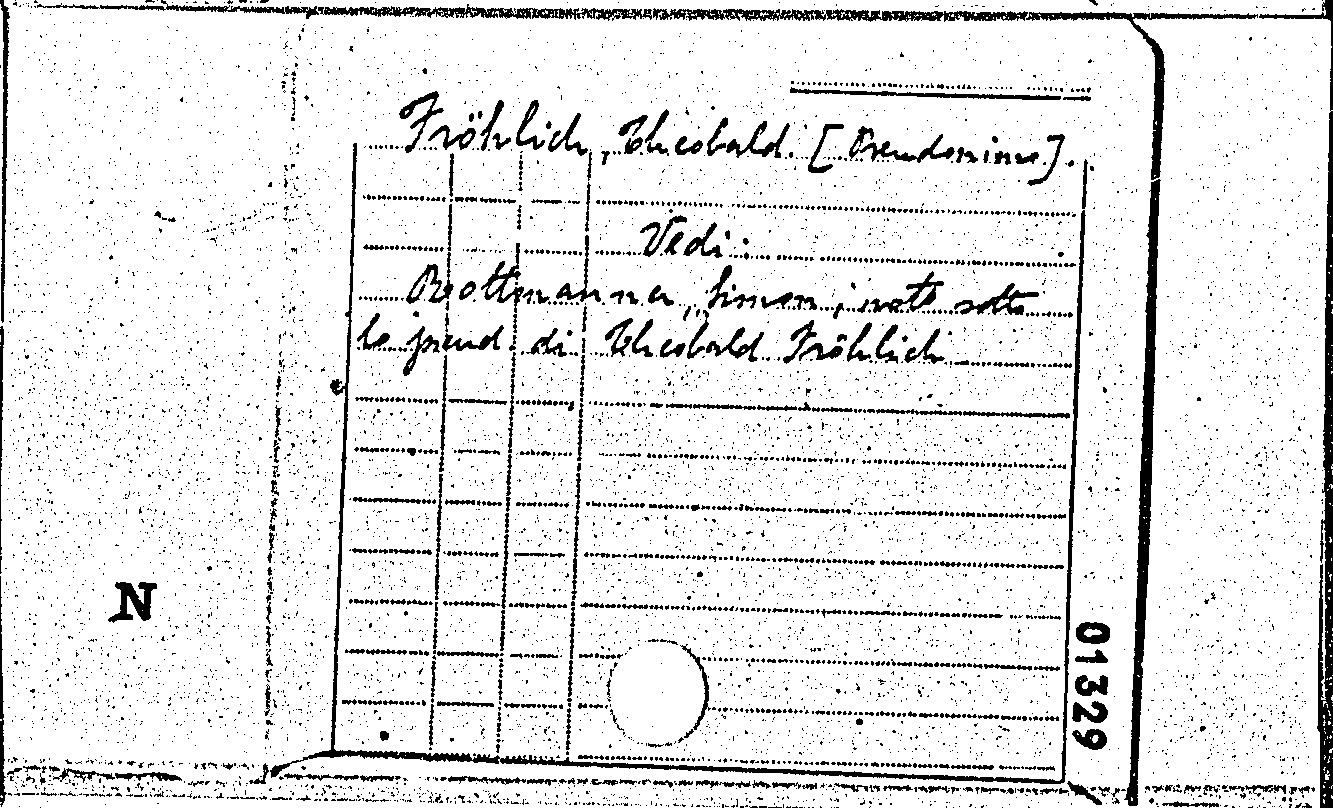 Fröhlich, Theobald. [Pseudonimo].
Vedi:
Rottmanner, Simon; noto sotto
lo pseud. di Theobald Fröhlich
N
01329